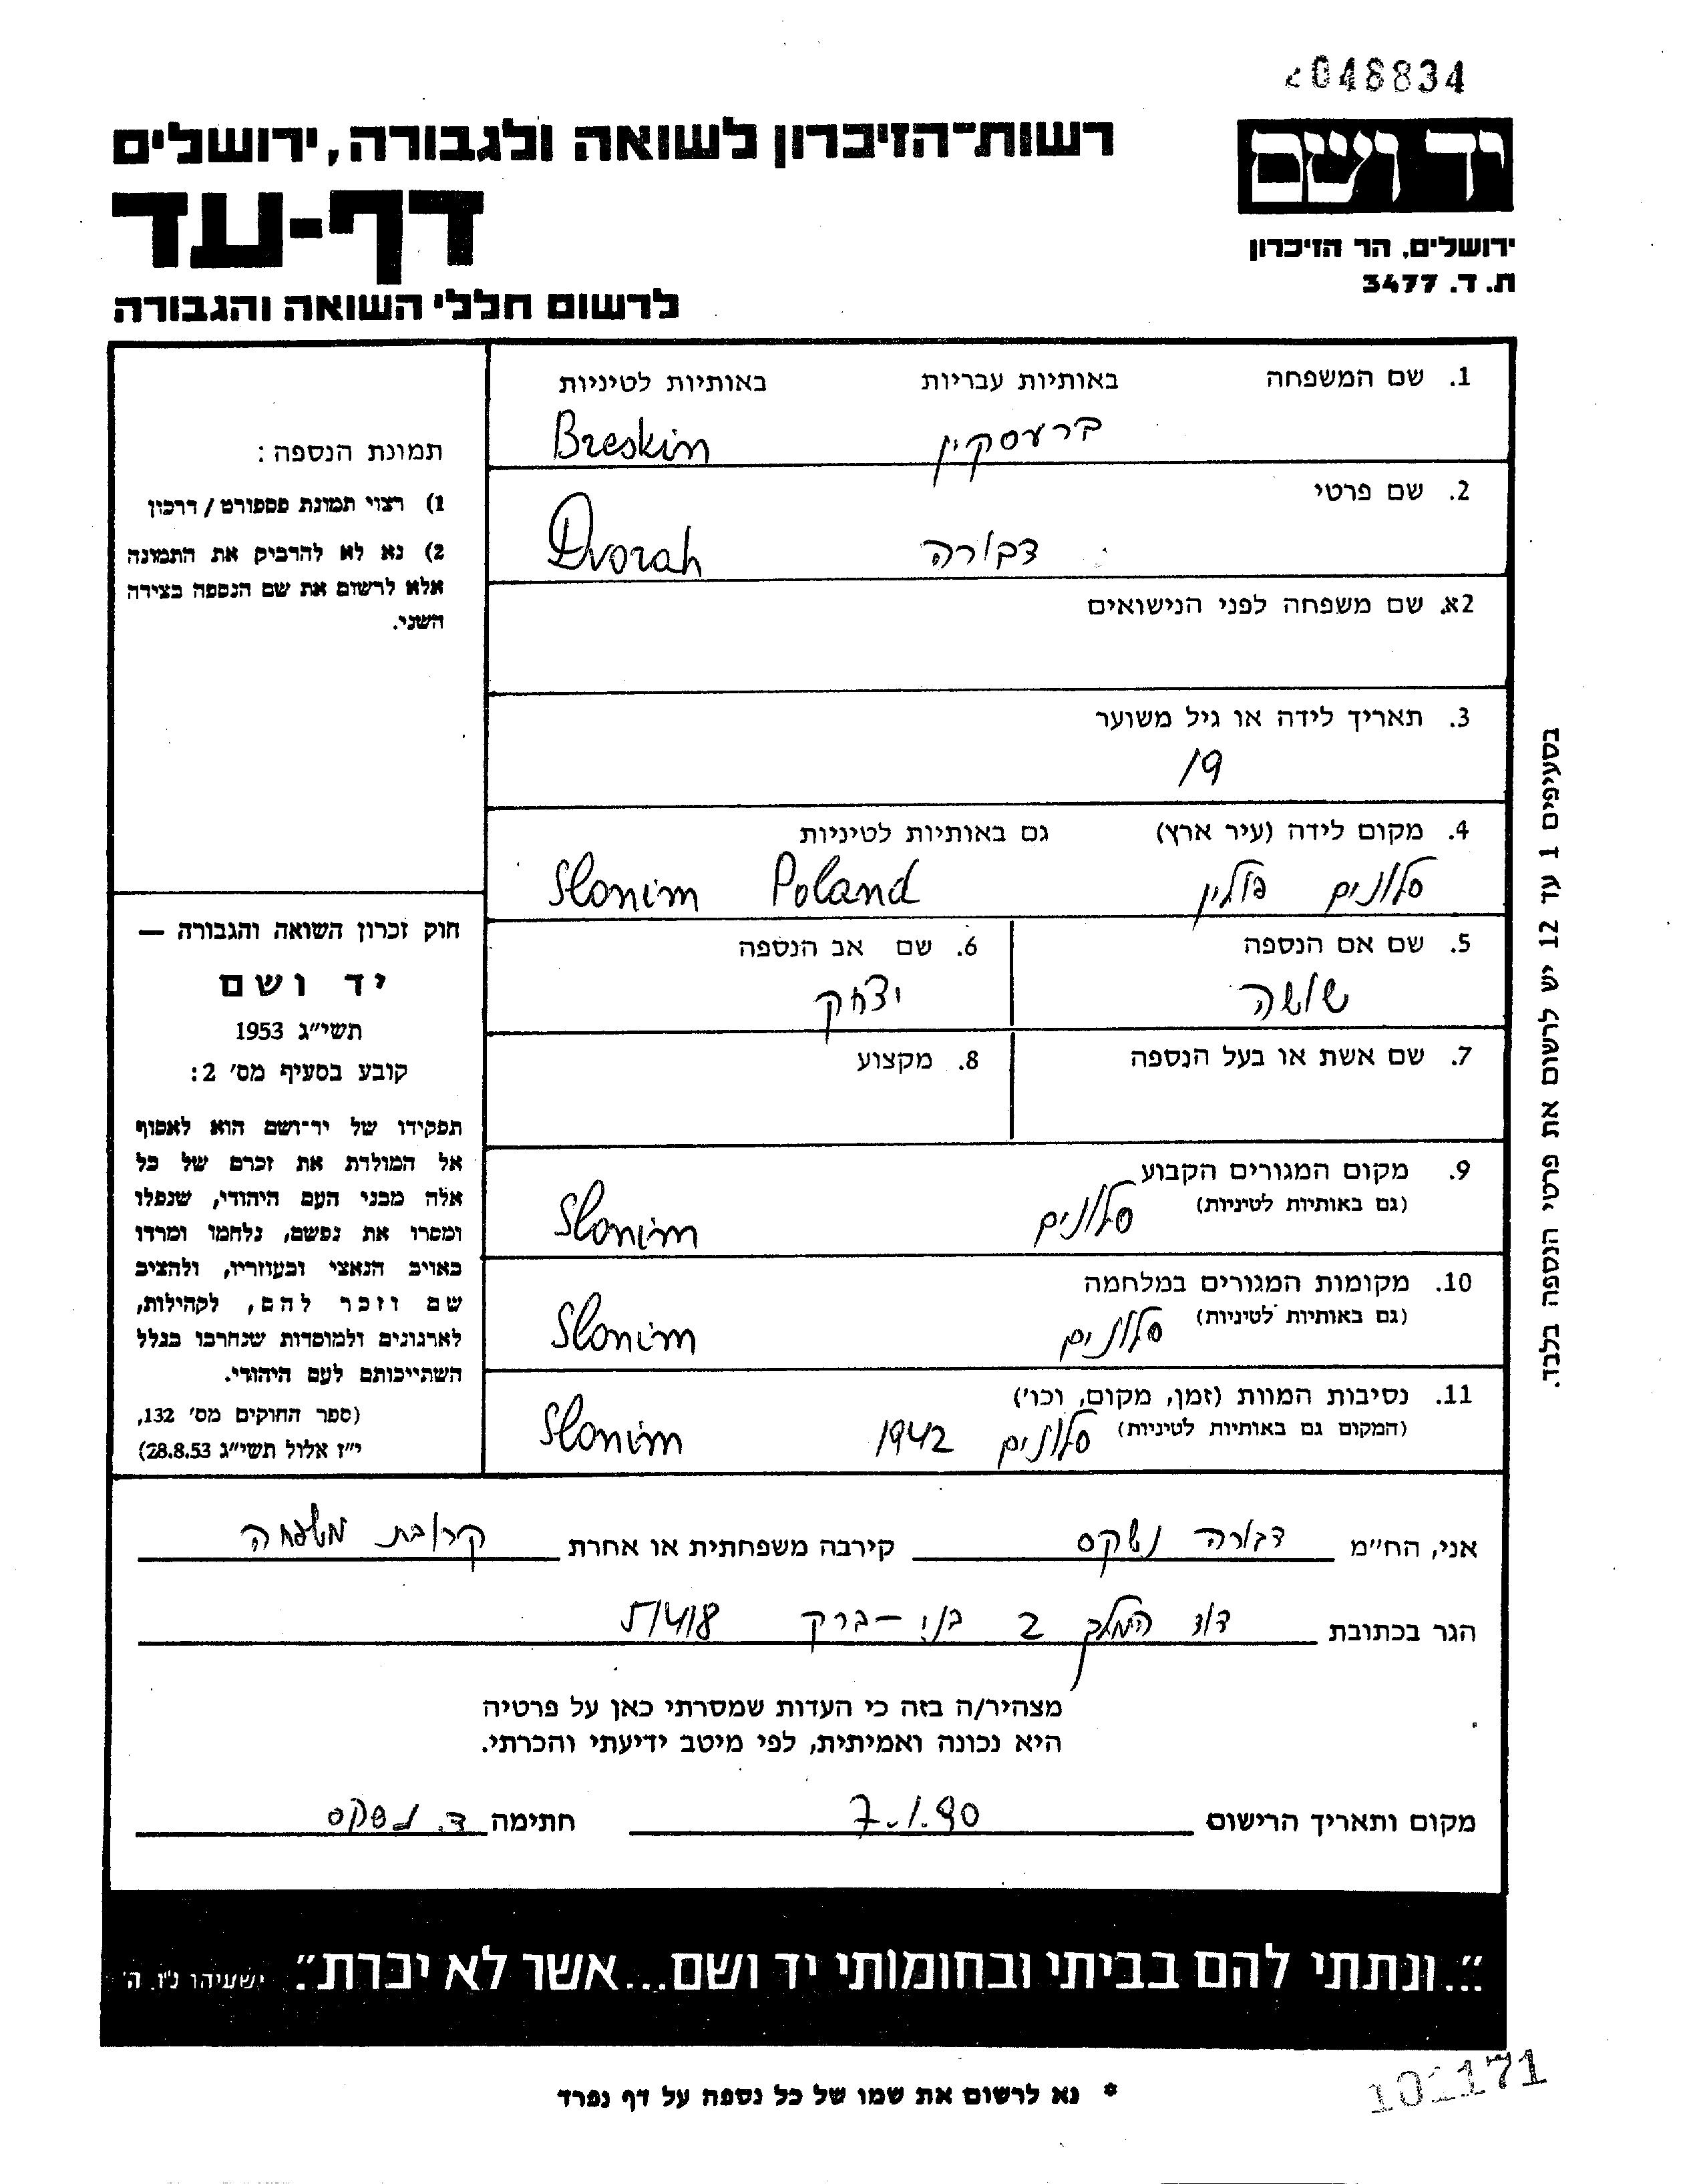 048834
יד ושם
ירושלים, הר הזיכרון
ת. ד. 3477
רשות־הזיכרון לשואה ולגבורה, ירושלים
דף-עד
לרשום חללי השואה והגבורה
1. שם המשפחה באותיות עבריות באותיות לטיניות
ברעסקין Breskin
2. שם פרטי
דבורה Dvorah
2א. שם משפחה לפני הנישואים
3. תאריך לידה או גיל משוער
19
4. מקום לידה (עיר ארץ) גם באותיות לטיניות
סלונים פולין Slonim Poland
5. שם אם הנספה 6. שם אב הנספה
שושה יצחק
7. שם אשת או בעל הנספה 8. מקצוע
9. מקום המגורים הקבוע
(גם באותיות לטיניות) סלונים Slonim
10. מקומות המגורים במלחמה
(גם באותיות לטיניות) סלונים Slonim
11. נסיבות המוות (זמן, מקום, וכו')
(המקום גם באותיות לטיניות) סלונים 1942 Slonim
תמונת הנספה:
1) רצוי תמונת פספורט / דרכון
2) נא לא להדביק את התמונה
אלא לרשום את שם הנספה בצידה
השני.
חוק זכרון השואה והגבורה —
יד ושם
תשי"ג 1953
קובע בסעיף מס' 2:
תפקידו של יד־ושם הוא לאסוף
אל המולדת את זכרם של כל
אלה מבני העם היהודי, שנפלו
ומסרו את נפשם, נלחמו ומרדו
באויב הנאצי ובעוזריו, ולהציב
שם וזכר להם, לקהילות,
לארגונים ולמוסדות שנחרבו בגלל
השתייכותם לעם היהודי.
(ספר החוקים מס' 132,
י"ז אלול תשי"ג 28.8.53)
בסעיפים 1 עד 12 יש לרשום את פרטי הנספה בלבד.
אני, הח"מ דבורה נשקס קירבה משפחתית או אחרת קרובת משפחה
הגר בכתובת דוד המלך 2 בני-ברק 51418
מצהיר/ה בזה כי העדות שמסרתי כאן על פרטיה
היא נכונה ואמיתית, לפי מיטב ידיעתי והכרתי.
מקום ותאריך הרישום 7.1.90 חתימה ד. נשקס
"...ונתתי להם בביתי ובחומותי יד ושם...אשר לא יכרת". ישעיהו נ"ו, ה'
* נא לרשום את שמו של כל נספה על דף נפרד
101171